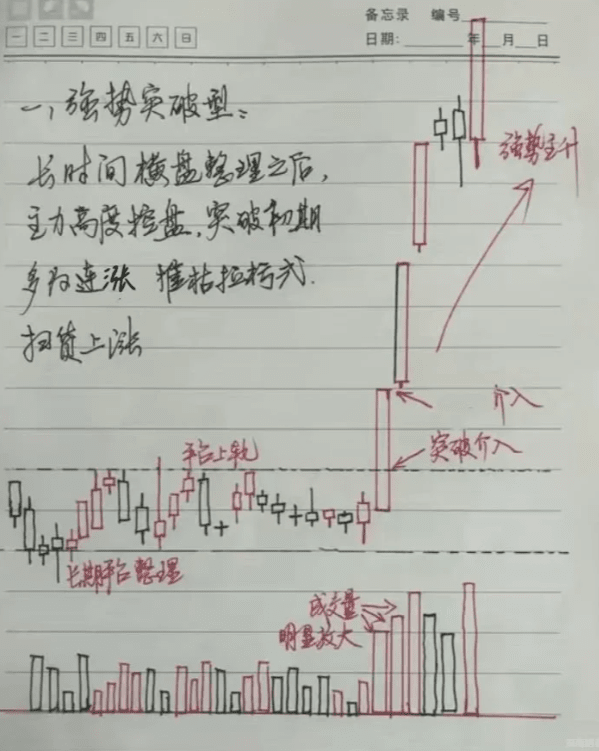 备忘录 编号
一 二 三 四 五 六 日
日期: 年 月 日
一、强势突破型:
长时间横盘整理之后,
主力高度控盘,突破初期
多为连涨 推枯拉朽式.
扫货上涨
强势主升
介入
突破介入
平台上轨
长期平台整理
成交量
明显放大